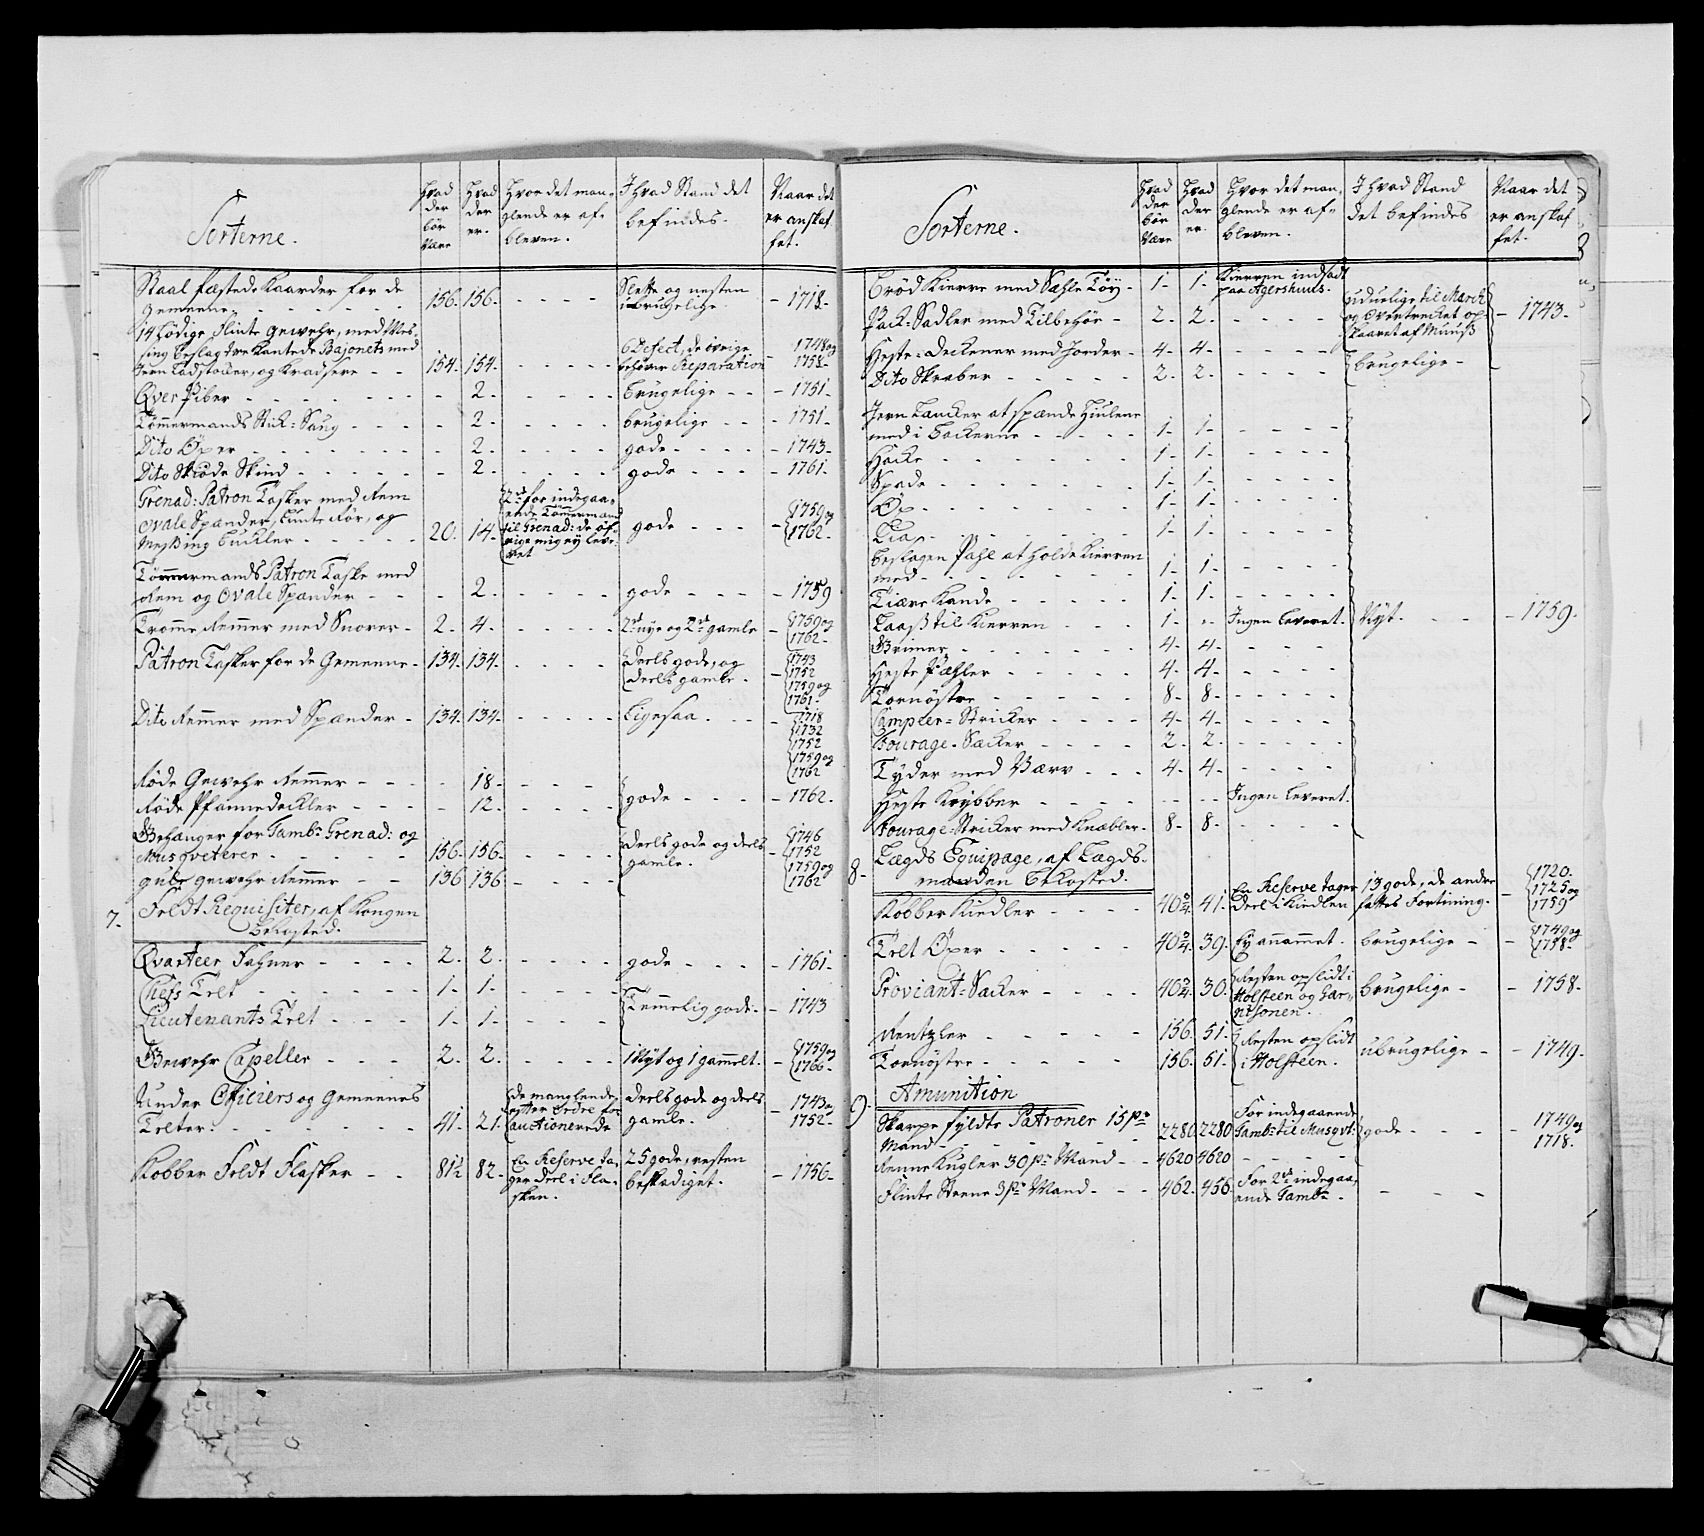 Sorterne.
Hvad der bør være
Hvad der er.
Hvor det manglende er afbleven.
I hvad Stand det befindes.
Naar det er anskaffet.
Staal fæstede Kaarder for de
Gemeene - - - 156. 156. - - - - Slette og nesten ubrugelige - 1718.
14 Lödige Flinte Gewehr, med Mes-
sing beslag tre kantede Bajonets med
Jern Ladstocker, og Kradsere - - 154. 154. - - - - 6 Defect, de övrige behöver Reparation - 1748 og 1758.
Qver Piber - - - - 2. - - - - brugelige - - 1751.
Tömmermands Stik-Saug - - - 2. - - - - brugelige - - 1751.
Dito Öxer - - - - 2. - - - - gode - - - 1743.
Dito Skiöde Skind - - - - 2. - - - - gode - - - 1761.
Grenad: Patron Tasker med Rem
ovale Spænder, Lunte Rör, og
Messing Buckler - - - 20. 14. 2de for indegaaende Tömmermænd til Grenad: de övrige mig ey leveret gode - - - 1759 og 1762.
Tömmermands Patron Taske med
Rem og Ovale Spænder - - - 2. - - - - gode - - - 1759
Tromme Remmer med Snorer - 2. 4. - - - - 2de nye og 2de gamle - 1759 og 1762.
Patron Tasker for de Gemeene - 134. 134. - - - - Deels gode, og Deels gamle. - 1743 1752 1759 og 1761.
Dito Remmer med Spænder - 134. 134. - - - - Ligesaa. - - 1718 1732 1752 1759 og 1762
Röde Gewehr Remmer - - - 18. - - - -
Röde Pfannedeckler - - - 12. - - - - gode - - - 1762.
Gehænger for Tambr Grenad: og
Musqveterer - - - - 156. 156. - - - - Deels gode og deels gamle. - 1746 1752 1759 og 1762
gule Gewehr Remmer - - 136 136 - - - -
7. Feldt Requisiter, af Kongen
bekosted.
Qvarteer Fahner - - - - 2. 2. - - - - gode - - - 1761.
Chefs Telt - - - - 1. 1. - - - -
Lieutenants Telt - - - 1. 1. - - - Temmelig gode. - 1743
Gewehr Capeller - - - 2. 2. - - - - 1 Nyt og 1 gammelt. - 1759 og 1766.
Under Officiers og Gemeenes
Telter. - - - - - 41. 21. de manglende efter Ordre for auctionerede Deels gode og deels gamle. - 1743 og 1752.
Kobber Feldt Flasker - - 81½ 82. En Reserve tager deel i Flasken. 25 gode, resten beskadiget. - 1756.
Sorterne.
Hvad der bör være
Hvad der er.
Hvor det manglende er afbleven.
I hvad Stand det befindes
Naar det er anskaffet.
Bröd Kierre med Sæhle Töy - 1. 1. Kierren indsadt paa Agershuus.
Pack-Sadler med Tilbehör - 2. 2. - - - - uduelige til March og Overtrecket opskaaret af Muus - 1743.
Heste-Deckener med Jorder - 4. 4. - - - - brugelige -
Dito Skraber - - - - 2. 2. - - - -
Jern Lancker at spænde Hiulene
med i Backerne - - - 1. 1. - - - -
Hacke - - - - 1. 1. - - - -
Spade - - - - 1. 1. - - - -
Öx - - - - 1. 1. - - - -
- - - - 1. 1. - - - -
Beslagen Pahl at holde Kierren
med - - - - 1. 1. - - - -
Tiære Kande - - - - 1. 1. - - - -
Laasz til Kierren - - - 1. - Ingen leveret. Nyt. - - 1759.
Grimer - - - - 4. 4. - - -
Heste Pæhler - - - - 4. 4. - - - -
Tornöstre - - - - 8. 8. - - - -
Campeer-Stricker - - - - 4. 4. - - - -
Fourage-Sæcker - - - - 2. 2. - - - -
Tyder med Værv - - - 4. 4. - - - -
Heste Krybber - - - - Ingen leveret.
Fourage-Stricker med Knæbler - 8. 8. - - - -
8. Lægds Equipage, af Lægds-
manden Bekosted.
Kobber Kiedler - - - - 40¾. 41. En Reserve tager deel i Kiedlen 13 gode, de andre fattes Fortining. - 1720. 1725 og 1759
Telt Öxer - - - - 40¾. 39. Ey annammet. brugelige - - 1749 og 1758.
Proviant-Sæcker - - - - 40¾. 30. Resten opslidt i Holsteen og Garnisonen. brugelige - - 1758.
Rentzler - - - - 156. 51. Resten opslidt
Tornöstre - - - - 156. 51. i Holsteen. ubrugelige - - 1749.
9. Amunition
Skarpe fyldte Patroner 15 pr
Mand - - - - 2280 2280 For indegaaende Tambr til Musqvt: gode - - - 1749 og 1718.
Renne Kugler 30 pr Mand - - 4620 4620 - - - -
Flinte Steene 3 pr Mand - - - 462. 456. For 2de indegaaende Tambr - - - -